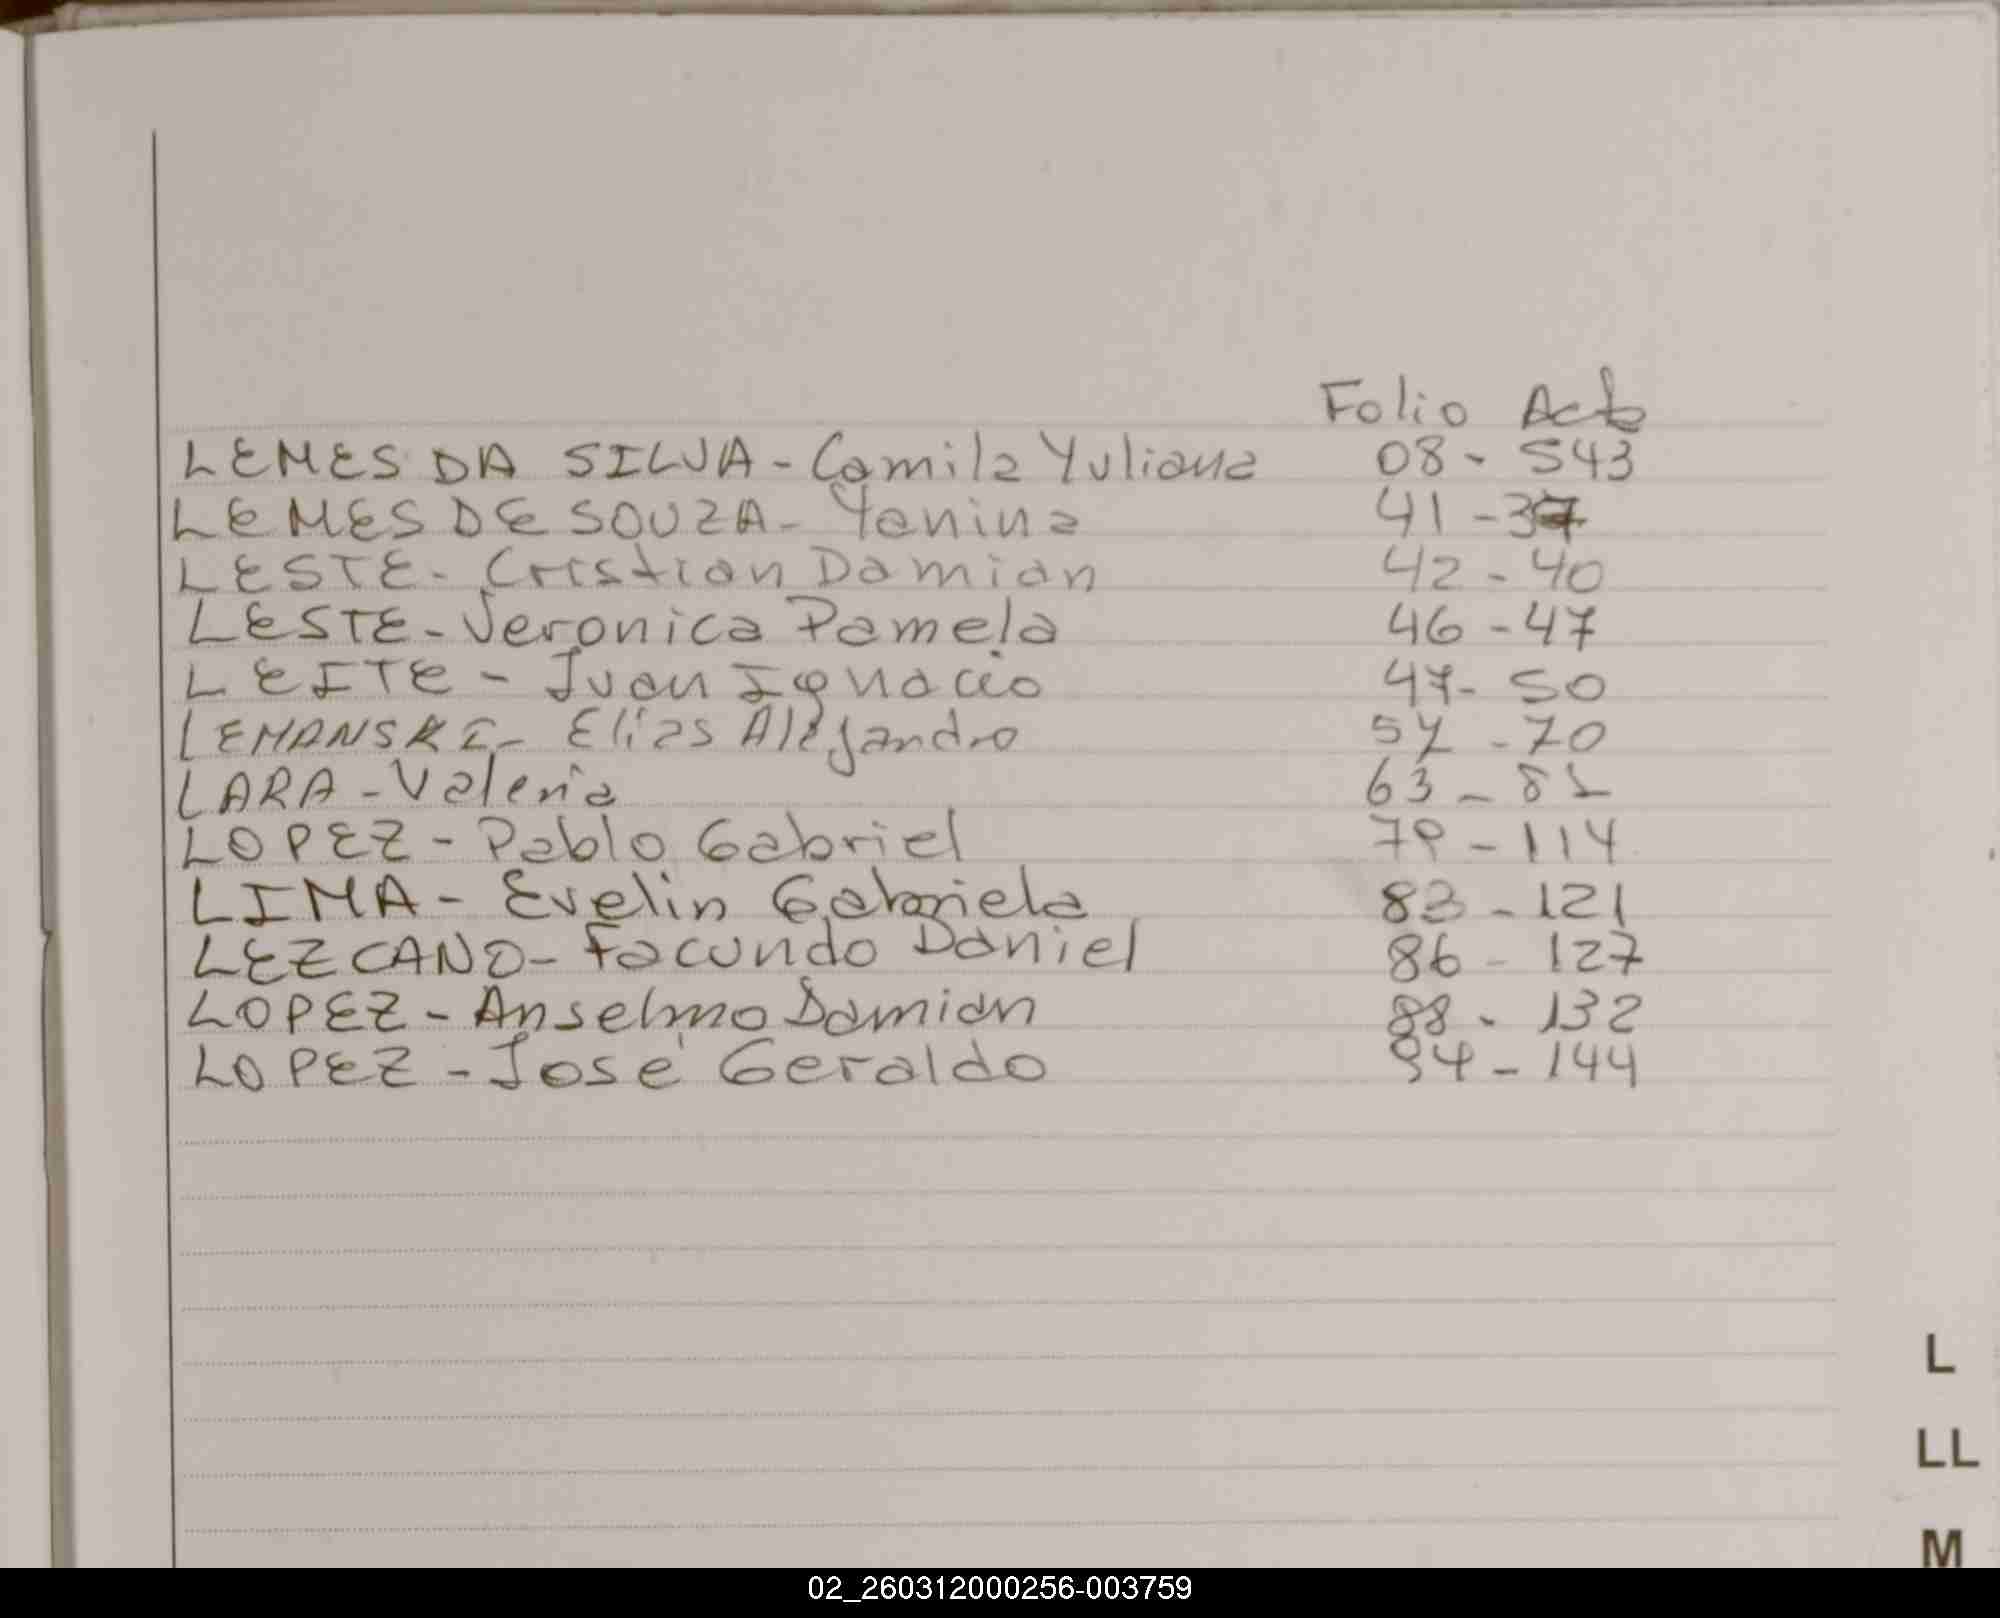 Folio Acta
LEMES DA SILVA - Camila Yuliana 08 - 543
LEMES DE SOUZA - Yanina 41 - 37
LESTE - Cristian Damian 42 - 40
LESTE - Veronica Pamela 46 - 47
LEITE - Juan Ignacio 47 - 50
LEMANSKI - Elias Alejandro 57 - 70
LARA - Valeria 63 - 81
LOPEZ - Pablo Gabriel 79 - 114
LIMA - Evelin Gabriela 83 - 121
LEZCANO - Facundo Daniel 86 - 127
LOPEZ - Anselmo Damian 88 - 132
LOPEZ - José Geraldo 94 - 144
L
LL
M
02_260312000256-003759